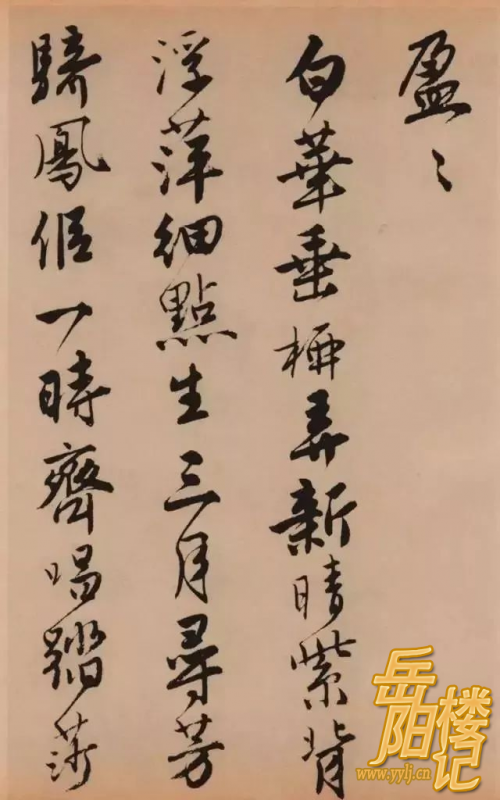 盈〻
白華垂弄新晴紫背
浮萍細點生三月尋芳
騎鳳侶一時齊唱踏莎
岳阳楼记
www.yylj.cn